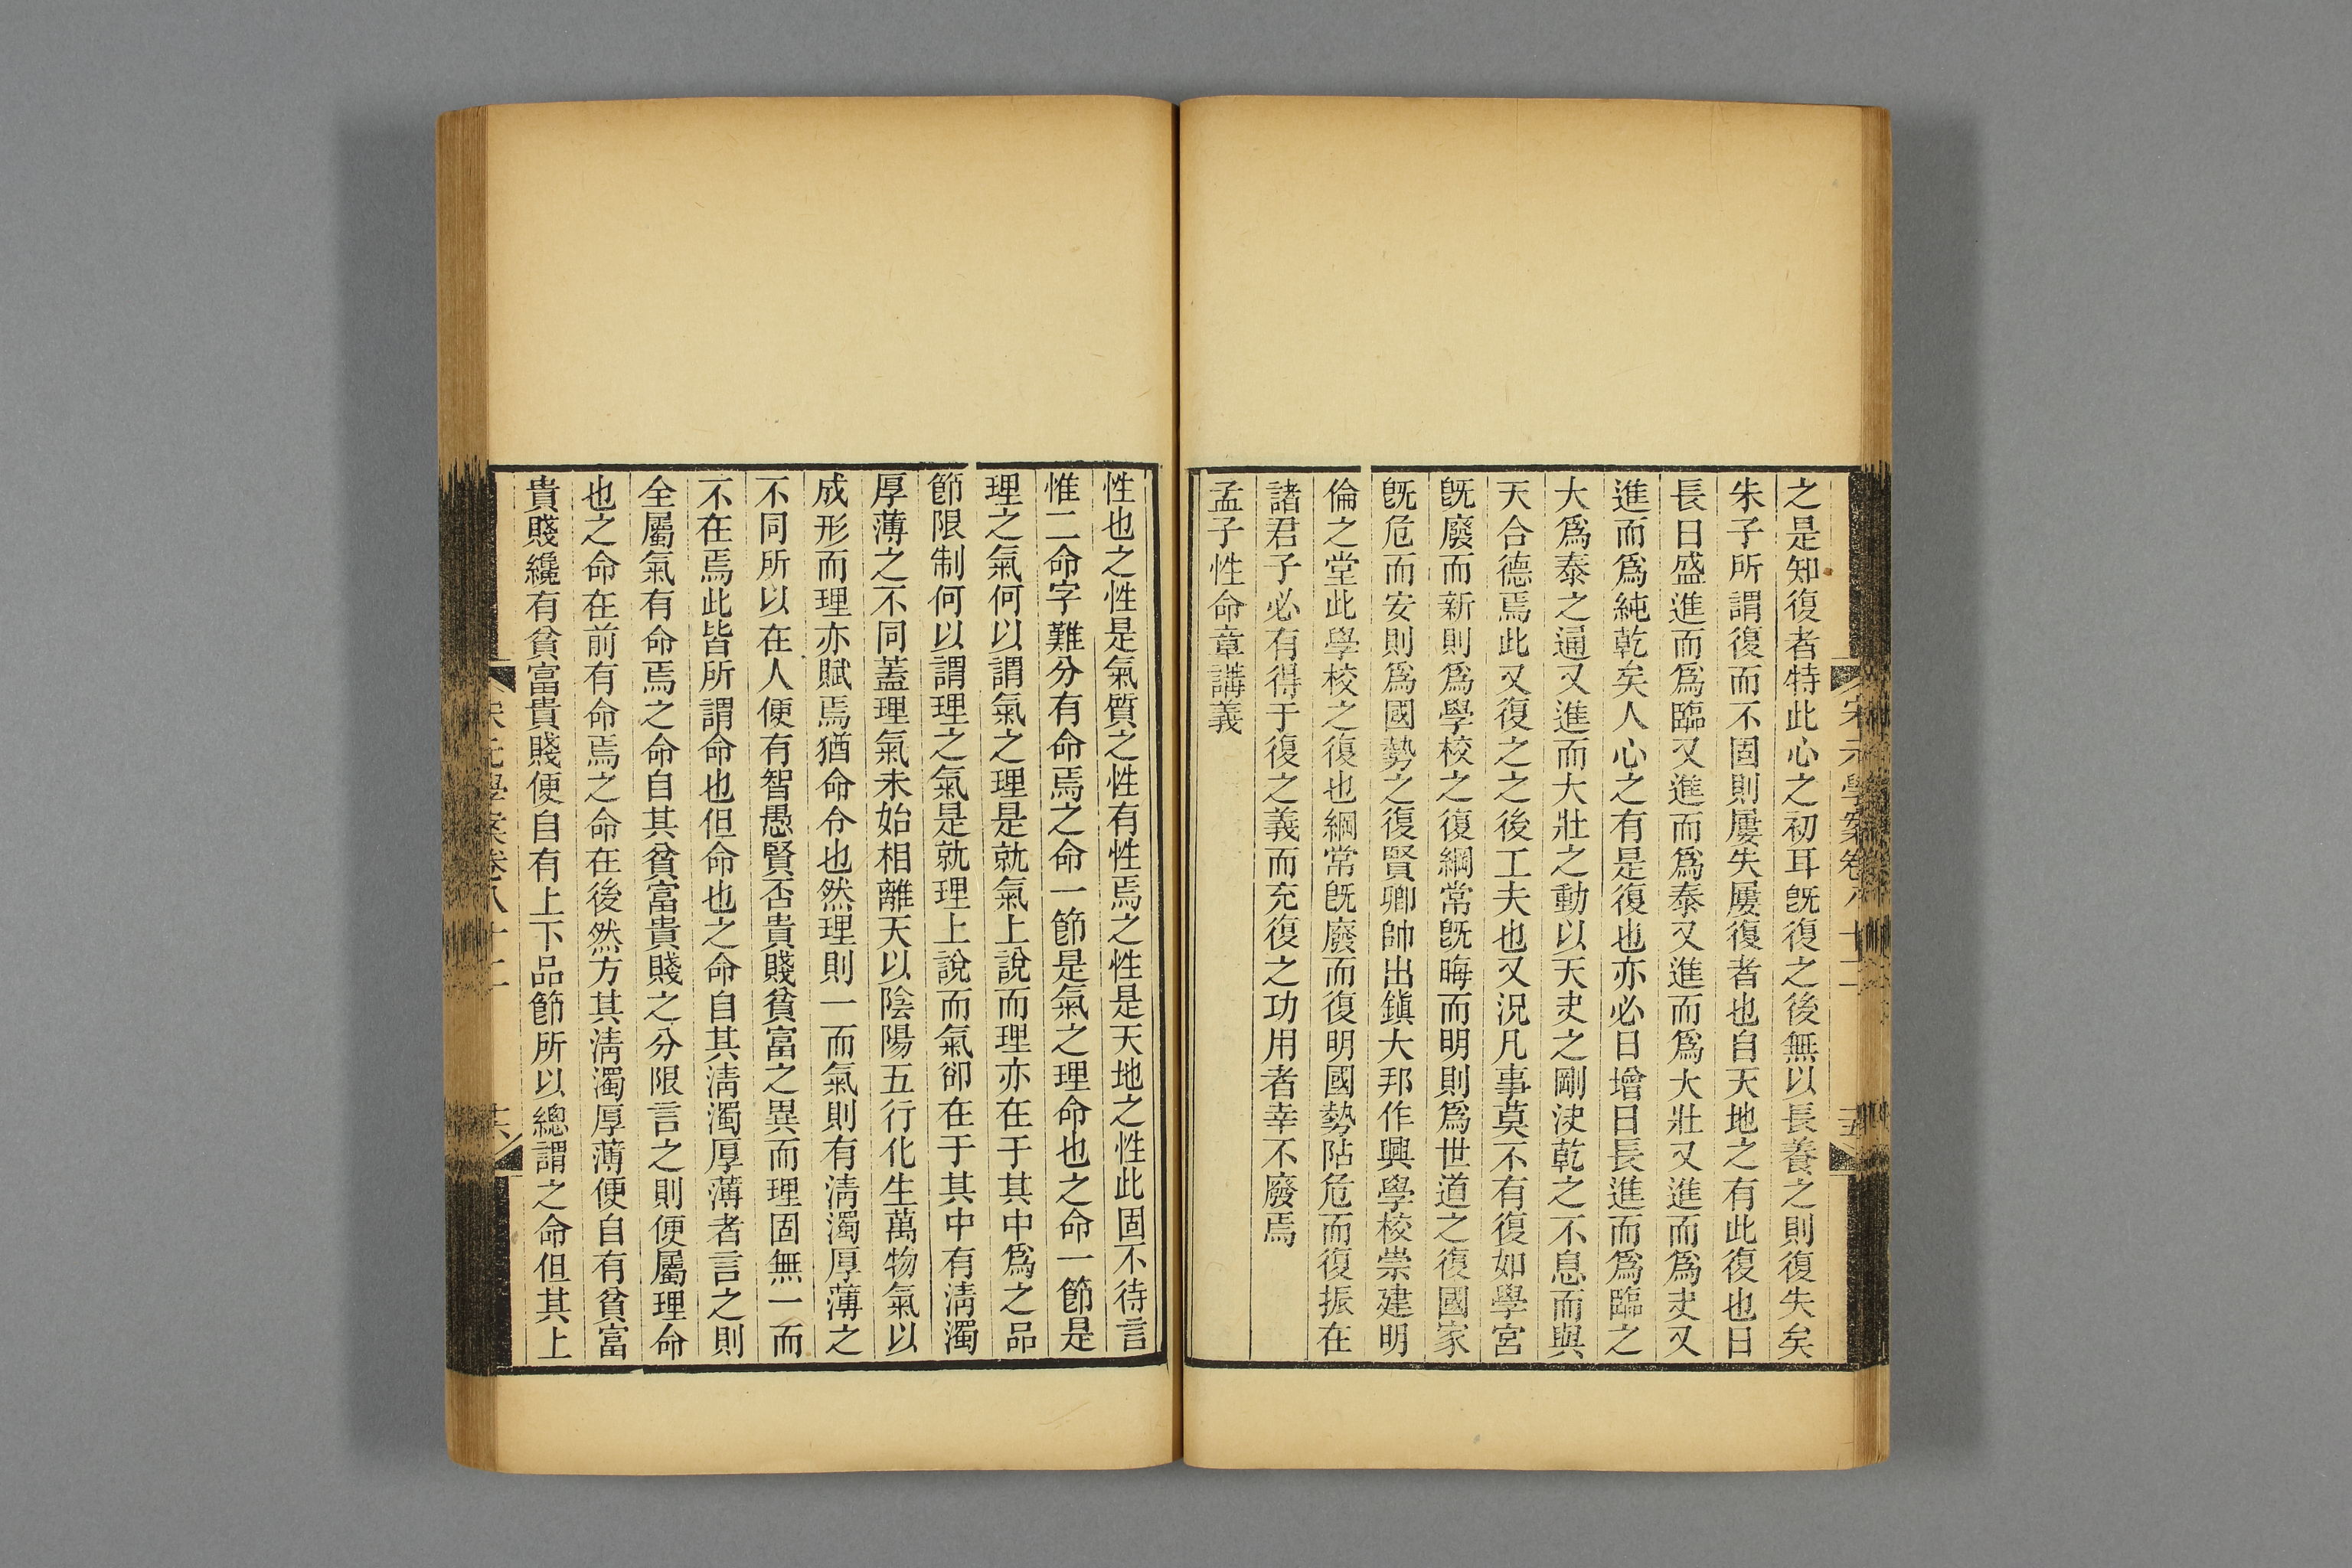 之是知復者特此心之初耳旣復之後無以長養之則復失矣
朱子所謂復而不固則屢失屢復者也自天地之有此復也日
長日盛進而爲臨又進而爲泰又進而爲大壯又進而爲夬又
進而爲純乾矣人心之有是復也亦必日增日長進而爲臨之
大爲泰之通又進而大壯之動以天夬之剛決乾之不息而與
天合德焉此又復之之後工夫也又況凡事莫不有復如學宮
旣廢而新則爲學校之復綱常旣晦而明則爲世道之復國家
旣危而安則爲國勢之復賢卿帥出鎭大邦作興學校崇建明
倫之堂此學校之復也綱常旣廢而復明國勢阽危而復振在
諸君子必有得于復之義而充復之功用者幸不廢焉
孟子性命章講義
性也之性是氣質之性有性焉之性是天地之性此固不待言
惟二命字難分有命焉之命一節是氣之理命也之命一節是
理之氣何以謂氣之理是就氣上說而理亦在于其中爲之品
節限制何以謂理之氣是就理上說而氣卻在于其中有淸濁
厚薄之不同蓋理氣未始相離天以陰陽五行化生萬物氣以
成形而理亦賦焉猶命令也然理則一而氣則有淸濁厚薄之
不同所以在人便有智愚賢否貴賤貧富之異而理固無一而
不在焉此皆所謂命也但命也之命自其淸濁厚薄者言之則
全屬氣有命焉之命自其貧富貴賤之分限言之則便屬理命
也之命在前有命焉之命在後然方其淸濁厚薄便自有貧富
貴賤纔有貧富貴賤便自有上下品節所以總謂之命但其上